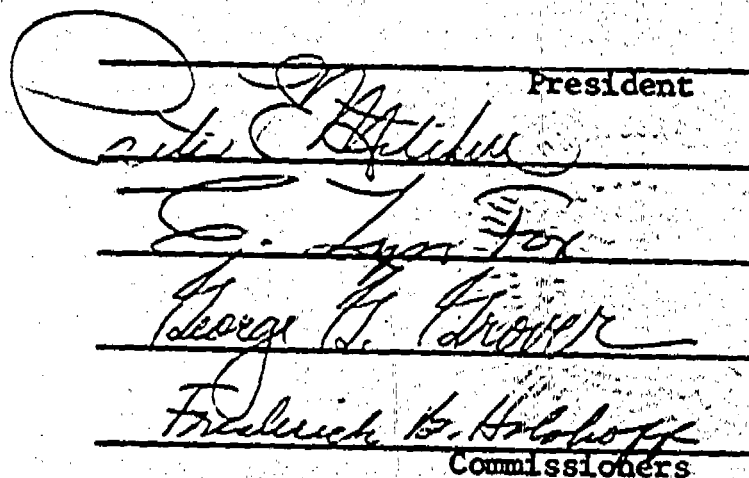 President
E. Lyn Fox
George G. Grover
Frederick B. Holoboff
Commissioners